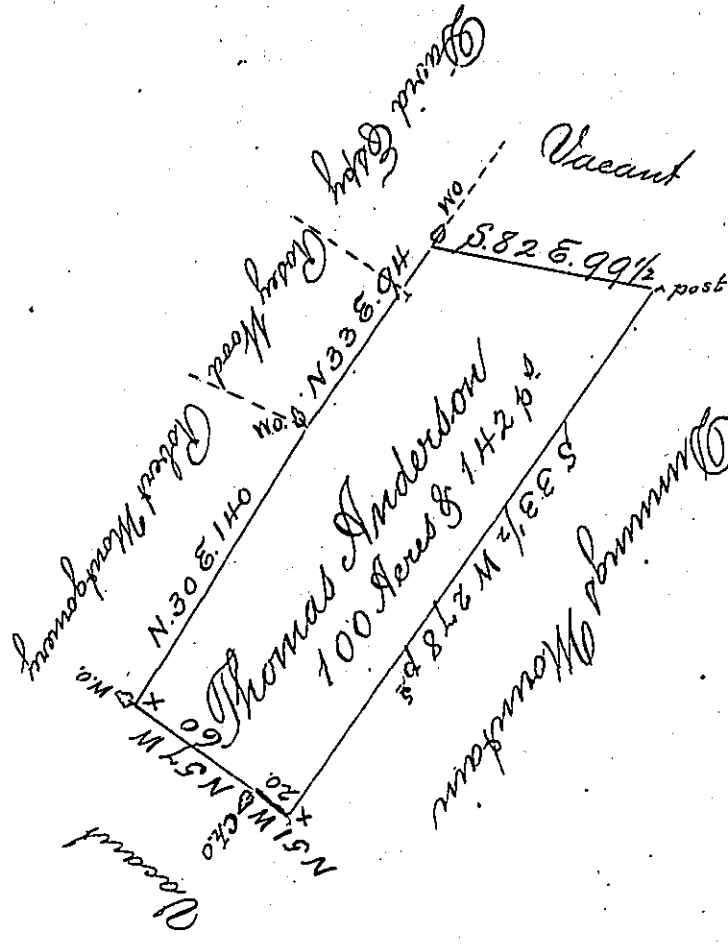 David Espy
Vacant
W.O
S. 82 E. 99 1/2
post
N 33 E. 94
W.O.
Robert Montgomery
N. 30 E. 140
Thomas Anderson
100 Acres & 142 ps.
S 33 1/2 W 278 ps
Mountain
W.O.
X
N 57 W
60
N 51 W
20.
X
Ch.O
Vacant